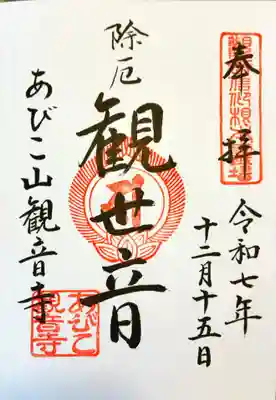 奉拝
令和七年
十二月十五日
除厄
観世音
あびこ山観音寺
あびこ
観音寺